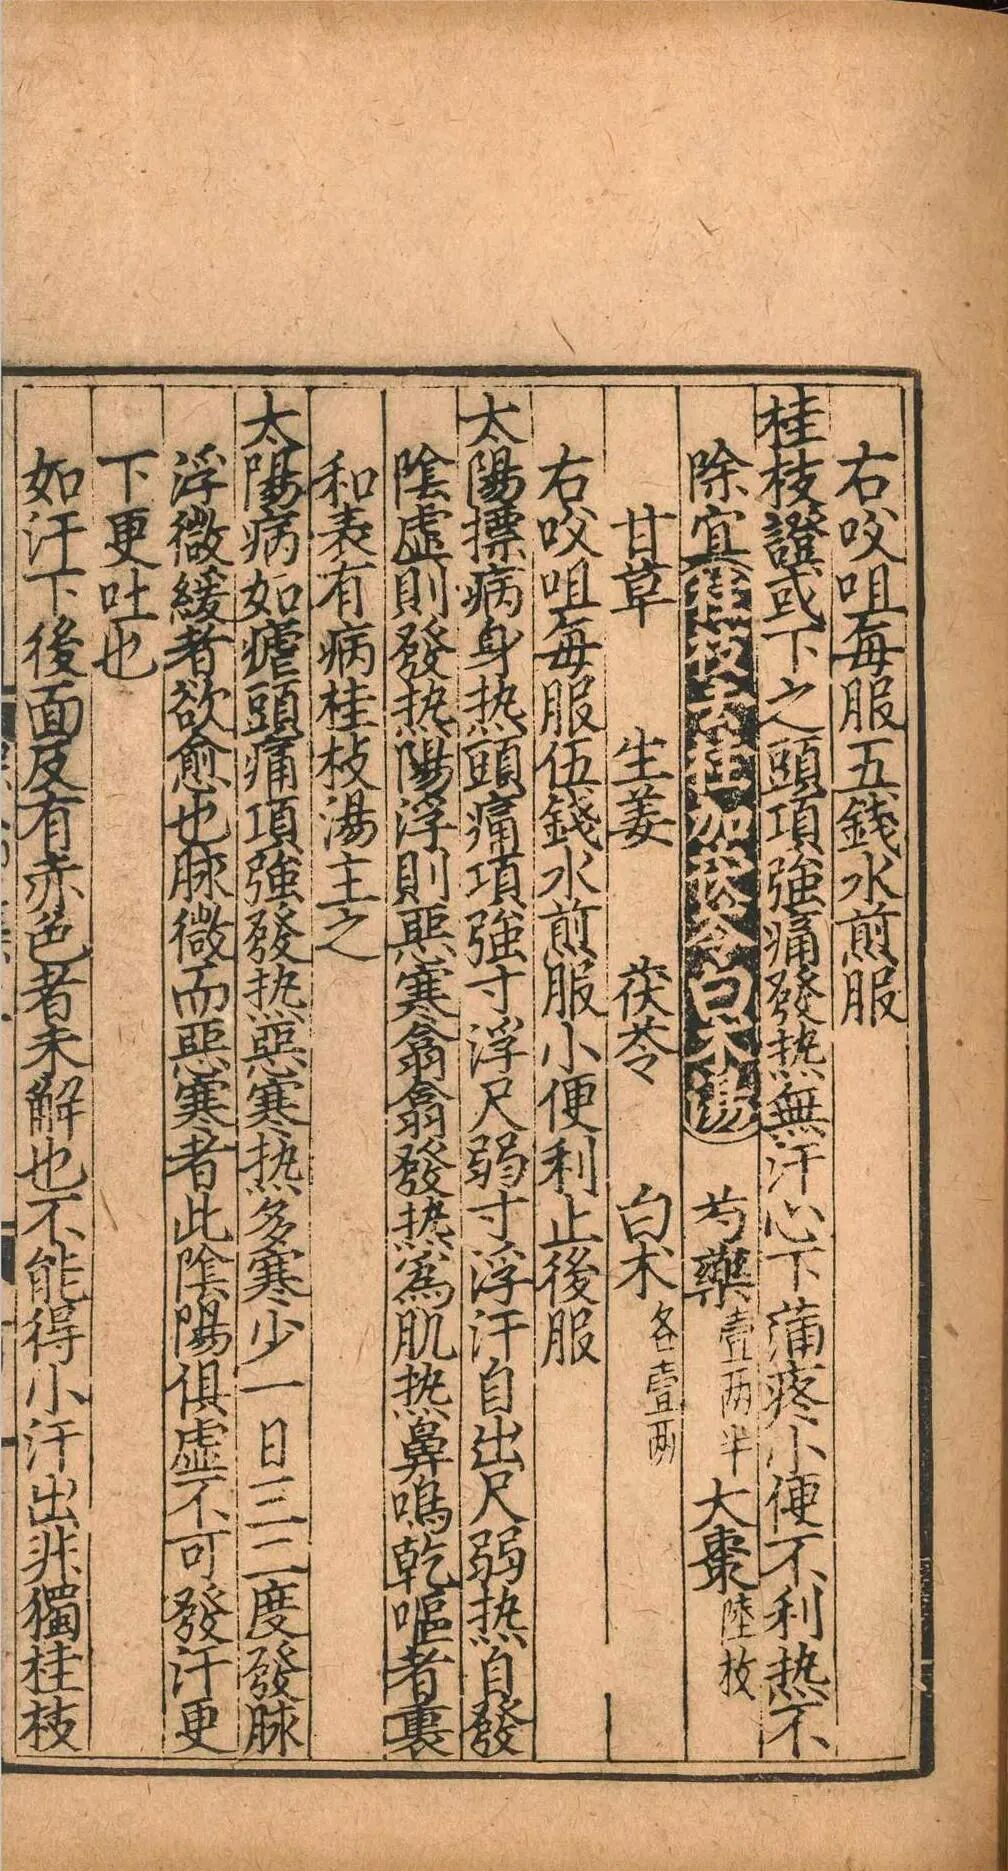 右㕮咀每服五錢水煎服
桂枝證或下之頭項強痛發热無汗心下蒲疼小便不利热不
除宜桂枝去桂加茯苓白术湯 芍藥壹两半 大棗陸枚
甘草 生姜 茯苓 白术各壹两
右㕮咀每服伍錢水煎服小便利止後服
太陽摽病身热頭痛項強寸浮尺弱寸浮汗自出尺弱热自發
陰虛則發热陽浮則惡寒翕翕發热為肌热鼻鳴乾嘔者裏
和表有病桂枝湯主之
太陽病如瘧頭痛項強發热惡寒热多寒少一日三二度發脉
浮微緩者欲愈也脉微而惡寒者此陰陽俱虛不可發汗更
下更吐也
如汗下後面反有赤色者未解也不能得小汗出非獨桂枝